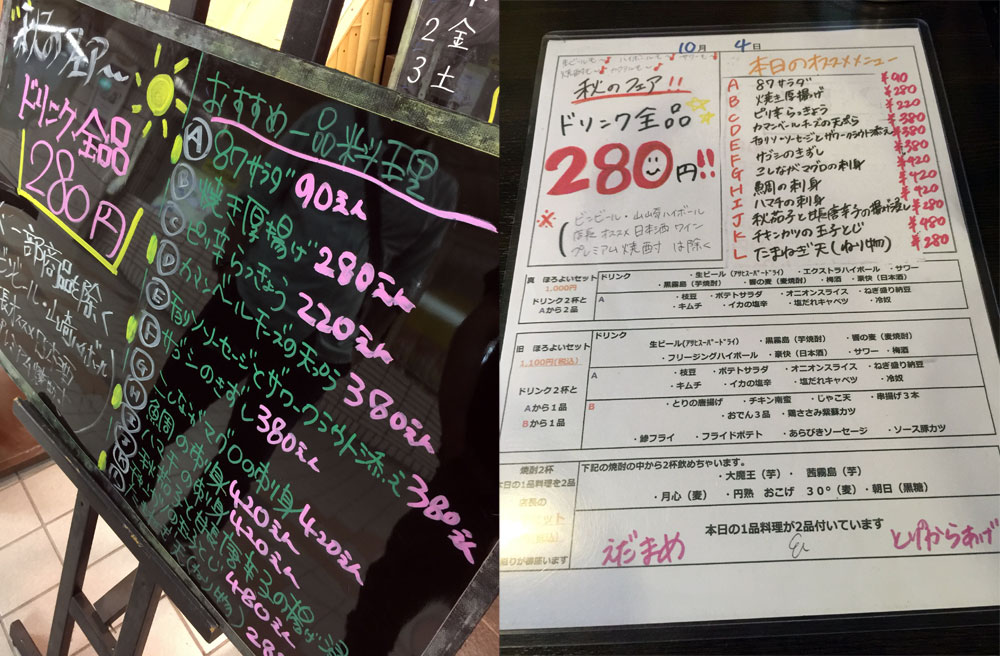 秋のフェアー
ドリンク全品
280円
一部商品を除く
2 金
3 土
おすすめ一品料理
A 87サラダ 90えん
B 焼き厚揚げ 280えん
C ピリ辛らっきょう 220えん
D カマンベールチーズの天ぷら 380えん
E 粗挽ソーセージとザワークラウト添え 380えん
F サゴシのきずし 380えん
マグロの刺身 420えん
魚周の刺身 420えん
ハマチの刺身 420えん
480えん
10月 4日
秋のフェア!!
ドリンク全品
280円!!
※
ビンビール・山崎ハイボール
店長オススメ日本酒 ワイン
プレミアム焼酎 は除く
本日のオススメメニュー
A 87サラダ ¥90
B 焼き厚揚げ ¥280
C ピリ辛らっきょう ¥220
D カマンベールチーズの天ぷら ¥380
E ソーセージとザワークラウト添え ¥380
F サゴシのきずし ¥380
G こしながマグロの刺身 ¥420
H 魚周の刺身 ¥420
I ハマチの刺身 ¥420
J 秋茄子と甘長唐辛子の揚げ浸し ¥280
K チキンカツの玉子とじ ¥480
L たまねぎ天(ぬり物) ¥280
真 ほろよいセット
1,000円
ドリンク2杯と
Aから2品
ドリンク
・生ビール(アサヒスーパードライ) ・エクストラハイボール ・サワー
・黒霧島(芋焼酎) ・響の麦(麦焼酎) ・梅酒 ・豪快(日本酒)
A
・枝豆 ・ポテトサラダ ・オニオンスライス ・ねぎ盛り納豆
・キムチ ・イカの塩辛 ・塩だれキャベツ ・冷奴
旧 ほろよいセット
1,100円(税込)
ドリンク2杯と
Aから1品
Bから1品
ドリンク
生ビール(アサヒスーパードライ) ・黒霧島(芋焼酎) ・響の麦(麦焼酎)
・フリージングハイボール ・豪快(日本酒) ・サワー ・梅酒
A
・枝豆 ・ポテトサラダ ・オニオンスライス ・ねぎ盛り納豆
・キムチ ・イカの塩辛 ・塩だれキャベツ ・冷奴
B
・とりの唐揚げ ・チキン南蛮 ・じゃこ天 ・串揚げ3本
・おでん3品 ・鶏ささみ紫蘇カツ
・鯵フライ ・フライドポテト ・あらびきソーセージ ・ソース豚カツ
焼酎2杯
本日の1品料理を2品
店長の
下記の焼酎の中から2杯飲めちゃいます。
・大魔王(芋)・ 茜霧島(芋)
・月心(麦) ・円熟 おこげ 30°(麦)・朝日(黒糖)
本日の1品料理が2品付いています
えだまめ
とりからあげ